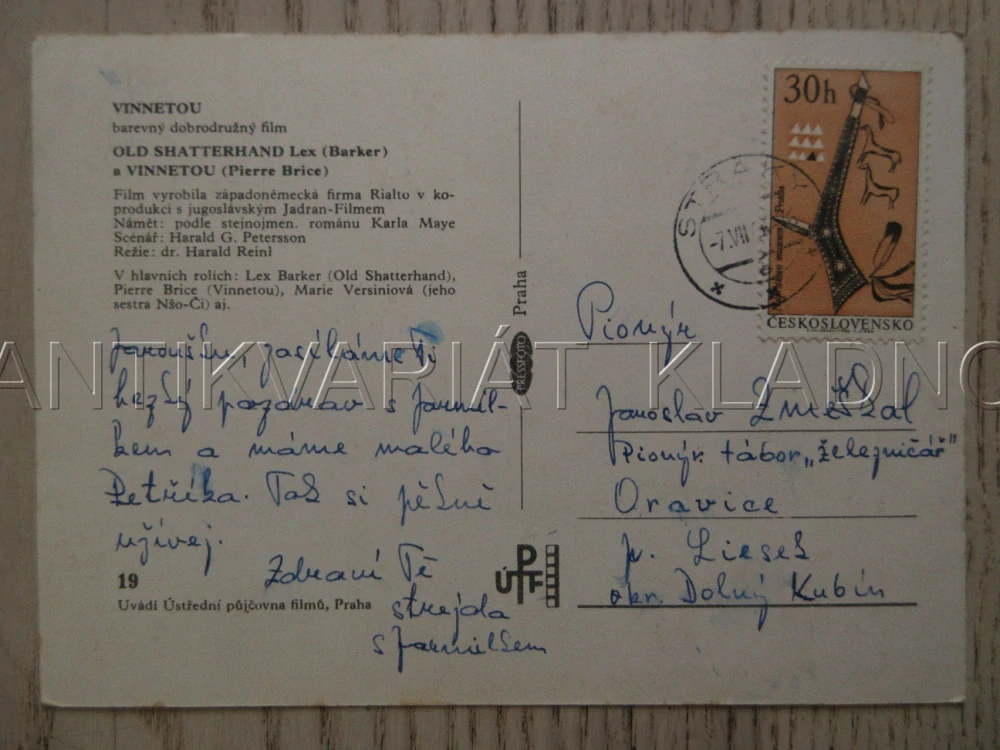 VINNETOU
barevný dobrodružný film
OLD SHATTERHAND Lex (Barker)
a VINNETOU (Pierre Brice)
Film vyrobila západoněmecká firma Rialto v ko-
produkci s jugoslávským Jadran-Filmem
Námět: podle stejnojmen. románu Karla Maye
Scénář: Harald G. Petersson
Režie: dr. Harald Reinl
V hlavních rolích: Lex Barker (Old Shatterhand),
Pierre Brice (Vinnetou), Marie Versiniová (jeho
sestra Nšo-Či) aj.
Jaroušku, zasíláme Ti
hezký pozdrav s Jarmil-
kem a máme malého
Petříka. Tak si pěkně
užívej.
Zdraví Tě
strejda
s Jarmilkem
19
Uvádí Ústřední půjčovna filmů, Praha
PRESSFOTO Praha
ÚPTF
30h
ČESKOSLOVENSKO
-7.VII
Pionýr
Jaroslav Zmeškal
Pionýr. tábor „železničář"
Oravice
p. Liesek
okr. Dolný Kubín
ANTIKVARIÁT KLADNO